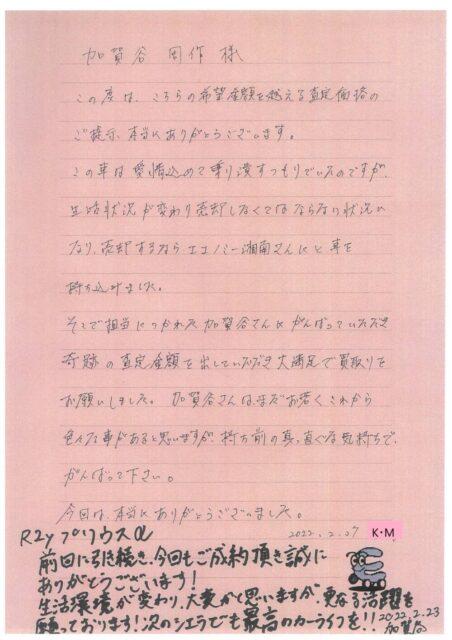 加賀谷 周作 様
この度は、こちらの希望金額を越える査定価格の
ご提示、本当にありがとうございます。
この車は愛情込めて乗り潰すつもりでいたのですが、
生活状況が変わり売却しなくてはならない状況に
なり、売却するなら、エコノミー湘南さんにと車を
持ち込みました。
そこで担当につかれた加賀谷さんにがんばっていただき
奇跡の査定金額を出していただき大満足で買取りを
お願いしました。加賀谷さんは、まだお若く、これから
色んな事があると思いますが、持ち前の真っ直ぐな気持ちで、
がんばって下さい。
今回は、本当にありがとうございました。
2022.2.27 K・M
R2y プリウスα
前回に引き続き、今回もご成約頂き誠に
ありがとうございます!
生活環境が変わり、大変かと思いますが、更なる活躍を
願っております!次のシエラでも最高のカーライフを!!
2022.2.23
加賀谷